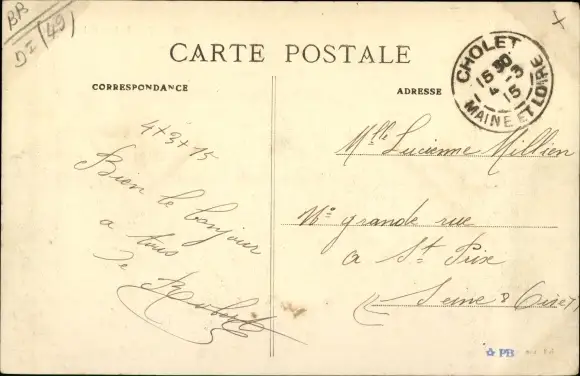 BB
DI (49)
CARTE POSTALE
CORRESPONDANCE
ADRESSE
CHOLET
15 30
4 - 3
15
MAINE ET LOIRE
4+3+15
Bien le bonjour
a tous
De
Mlle Lucienne Millien
No grande rue
a St Prix
(Seine & Oise)
PB